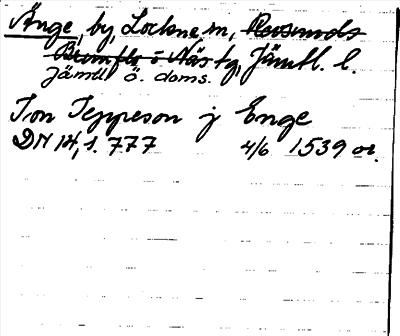 Änge, by, Lockne sn, Revsunds
Brunflo o Näs tg, Jämtl. l.
Jämtl ö. doms.
Jon Jeppeson j Enge
DN 14,1. 777 4/6 1539 or.